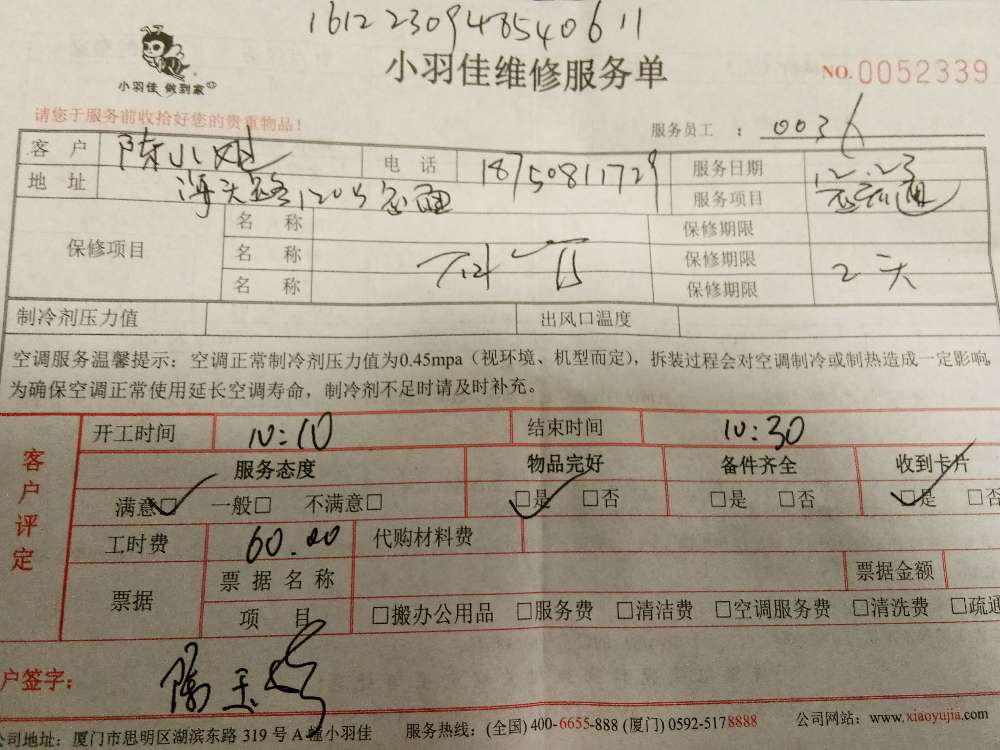 1612230948540611
小羽佳 做到家
小羽佳维修服务单
NO.0052339
请您于服务前收拾好您的贵重物品！
服务员工 ： 0036
客 户 陈小姐 电 话 18750811729 服务日期 12.23
地 址 120号 服务项目
保修项目 名 称 保修期限
名 称 保修期限 2天
名 称 保修期限
制冷剂压力值 出风口温度
空调服务温馨提示：空调正常制冷剂压力值为0.45mpa（视环境、机型而定），拆装过程会对空调制冷或制热造成一定影响，
为确保空调正常使用延长空调寿命，制冷剂不足时请及时补充。
客户评定
开工时间 10:10 结束时间 10:30
服务态度 物品完好 备件齐全 收到卡片
满意□ 一般□ 不满意□ □是 □否 □是 □否 □是 □否
工时费 60.00 代购材料费
票据 票据名称 票据金额
项 目 □搬办公用品 □服务费 □清洁费 □空调服务费 □清洗费 □疏通
户签字： 陈玉
公司地址：厦门市思明区湖滨东路 319 号 A 幢小羽佳 服务热线：(全国) 400-6655-888 (厦门) 0592-5178888 公司网站：www.xiaoyujia.com